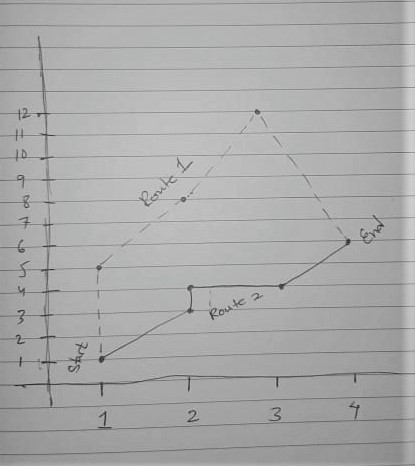 12
11
10
9
8
7
6
5
4
3
2
1
Route 1
End
Route 2
Start
1 2 3 4